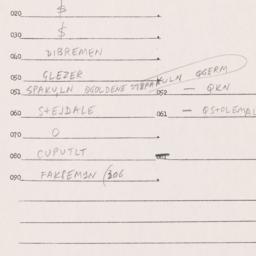 020 $
030 $
040 DIBREMEN
050 GLEZER
051 SPAKULN QGOLDENE QGERM
052 — QKN
060 STEJDALE 061 — QSTOLEMAL
070 O
080 CUPUTLT
090 FAKSEMIN (306